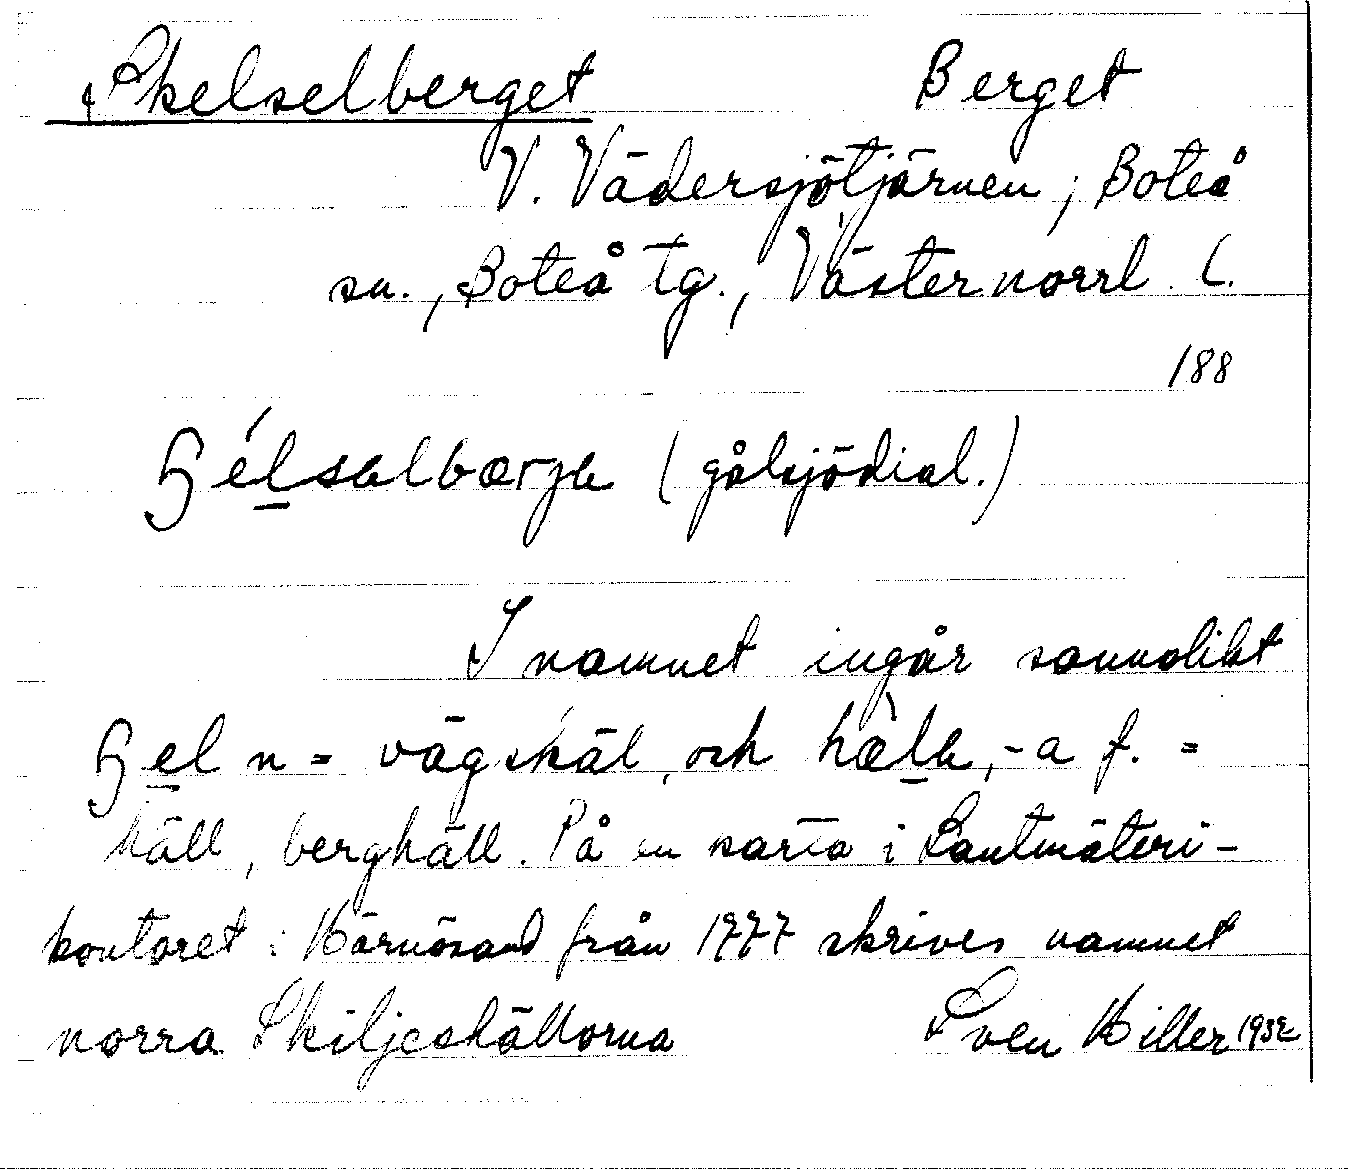 Skelselberget Berget
V. Vädersjötjärnen, Boteå
sn., Boteå tg., Västernorrl. l.
188
Ʃélsəlbærjə (gålsjödial.)
I namnet ingår sannolikt
Ʃel n = vägskäl, och hælə, -a f. =
häll, berghäll. På en karta i Lantmäteri-
kontoret i Härnösand från 1777 skrives namnet
norra Skiljeshällorna Sven Hiller 1932